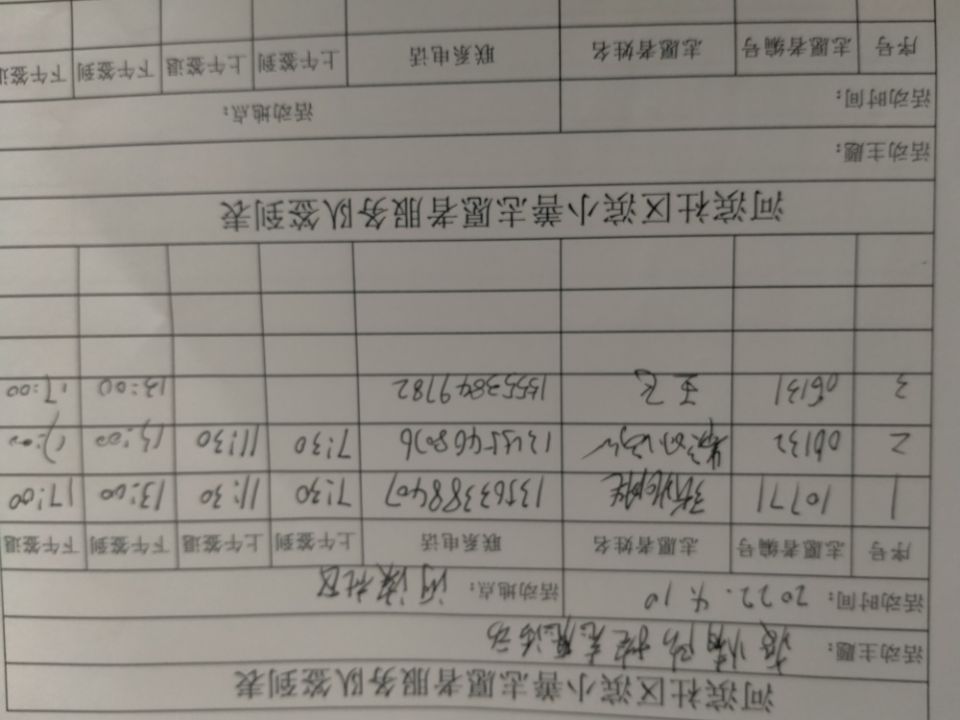 河滨社区滨小善志愿者服务队签到表
活动主题： 疫情防控志愿活动
活动时间： 2022.4.10 活动地点： 河滨社区
序号 志愿者编号 志愿者姓名 联系电话 上午签到 上午签退 下午签到 下午签退
1 10771 13563388407 7:30 11:30 13:00 17:00
2 06132 13455468026 7:30 11:30 13:00 17:00
3 06131 王飞 15553849782 13:00 17:00
河滨社区滨小善志愿者服务队签到表
活动主题：
活动时间： 活动地点：
序号 志愿者编号 志愿者姓名 联系电话 上午签到 上午签退 下午签到 下午签退